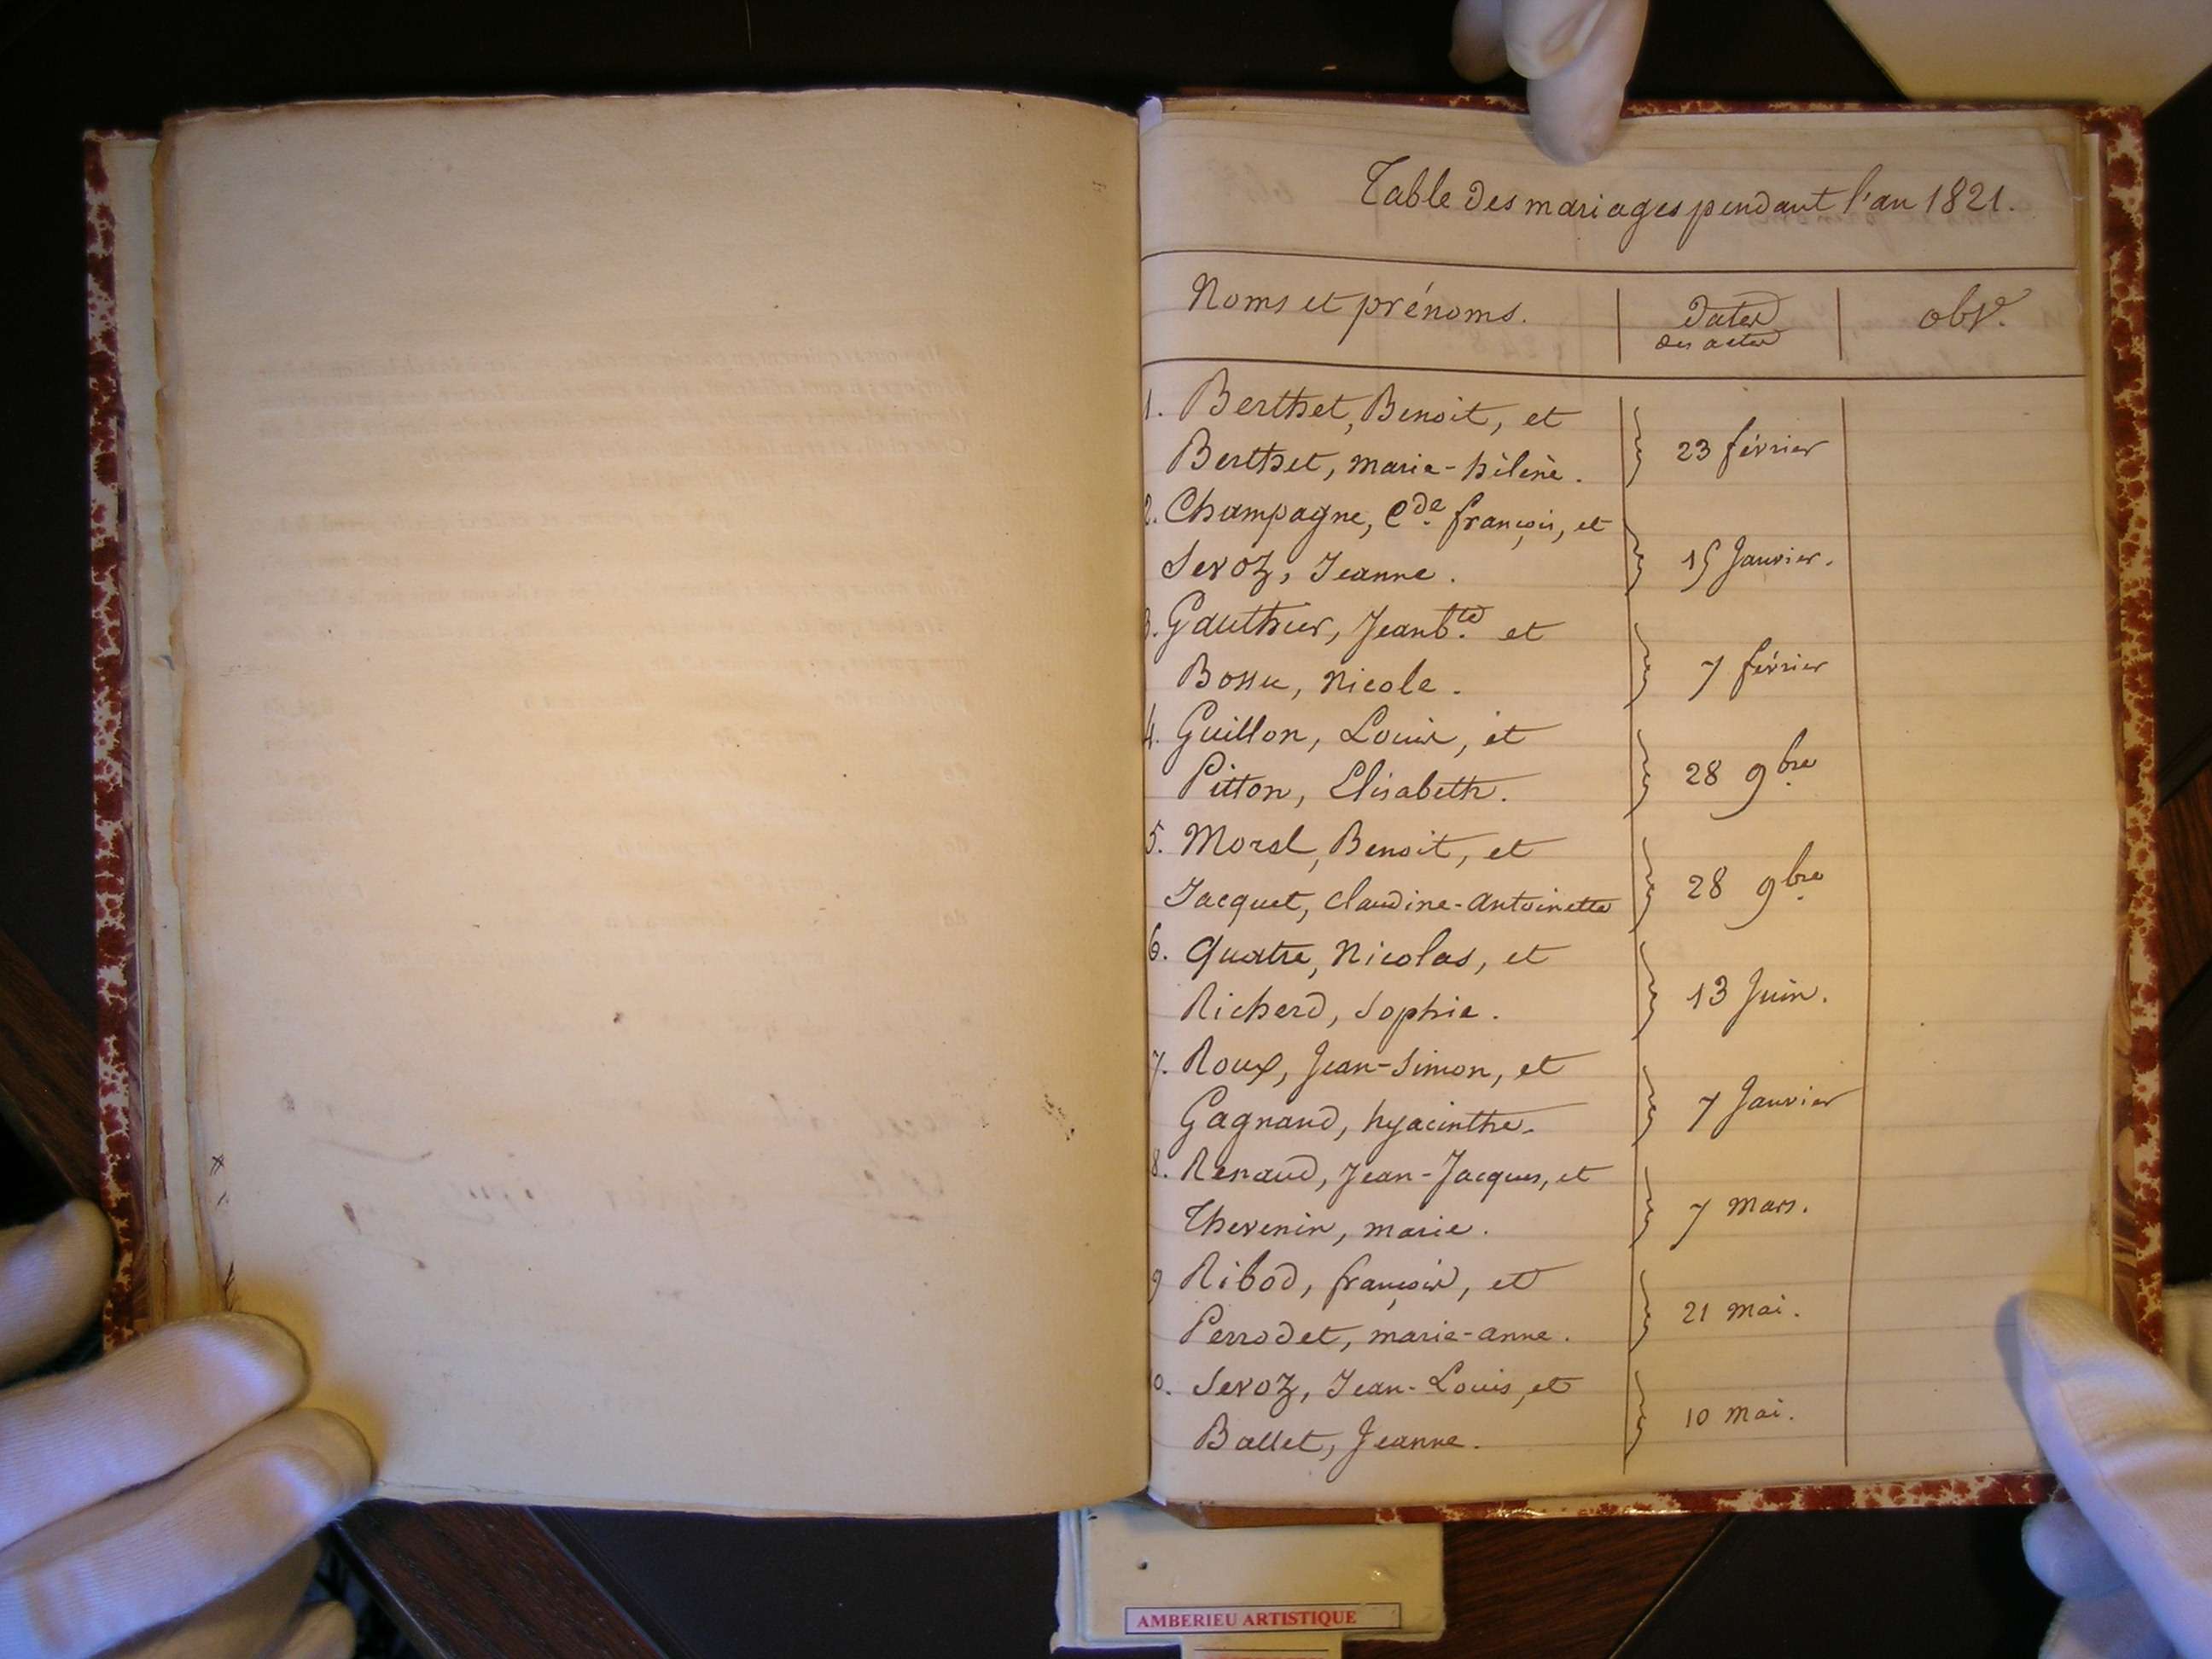 Table des mariages pendant l'an 1821.
Noms et prénoms.
dates
des actes
obs.
1. Berthet, Benoit, et
Berthet, marie-hélène.
23 février
2. Champagne, Cde. françois, et
Servoz, Jeanne.
15 Janvier.
3. Gauthier, Jean bte. et
Bossu, Nicole.
7 février
4. Guillon, Louis, et
Pitton, Elisabeth.
28 9bre
5. Morel, Benoit, et
Jacquet, Claudine-Antoinette
28 9bre
6. Quatre, Nicolas, et
Richerd, Sophie.
13 Juin.
7. Roux, Jean-Simon, et
Gagnaud, hyacinthe.
7 Janvier
8. Renaud, Jean-Jacques, et
Thevenin, marie.
7 Mars.
9 Ribod, françois, et
Perrodet, marie-anne.
21 Mai.
0. Servoz, Jean-Louis, et
Ballet, Jeanne.
10 Mai.
AMBERIEU ARTISTIQUE